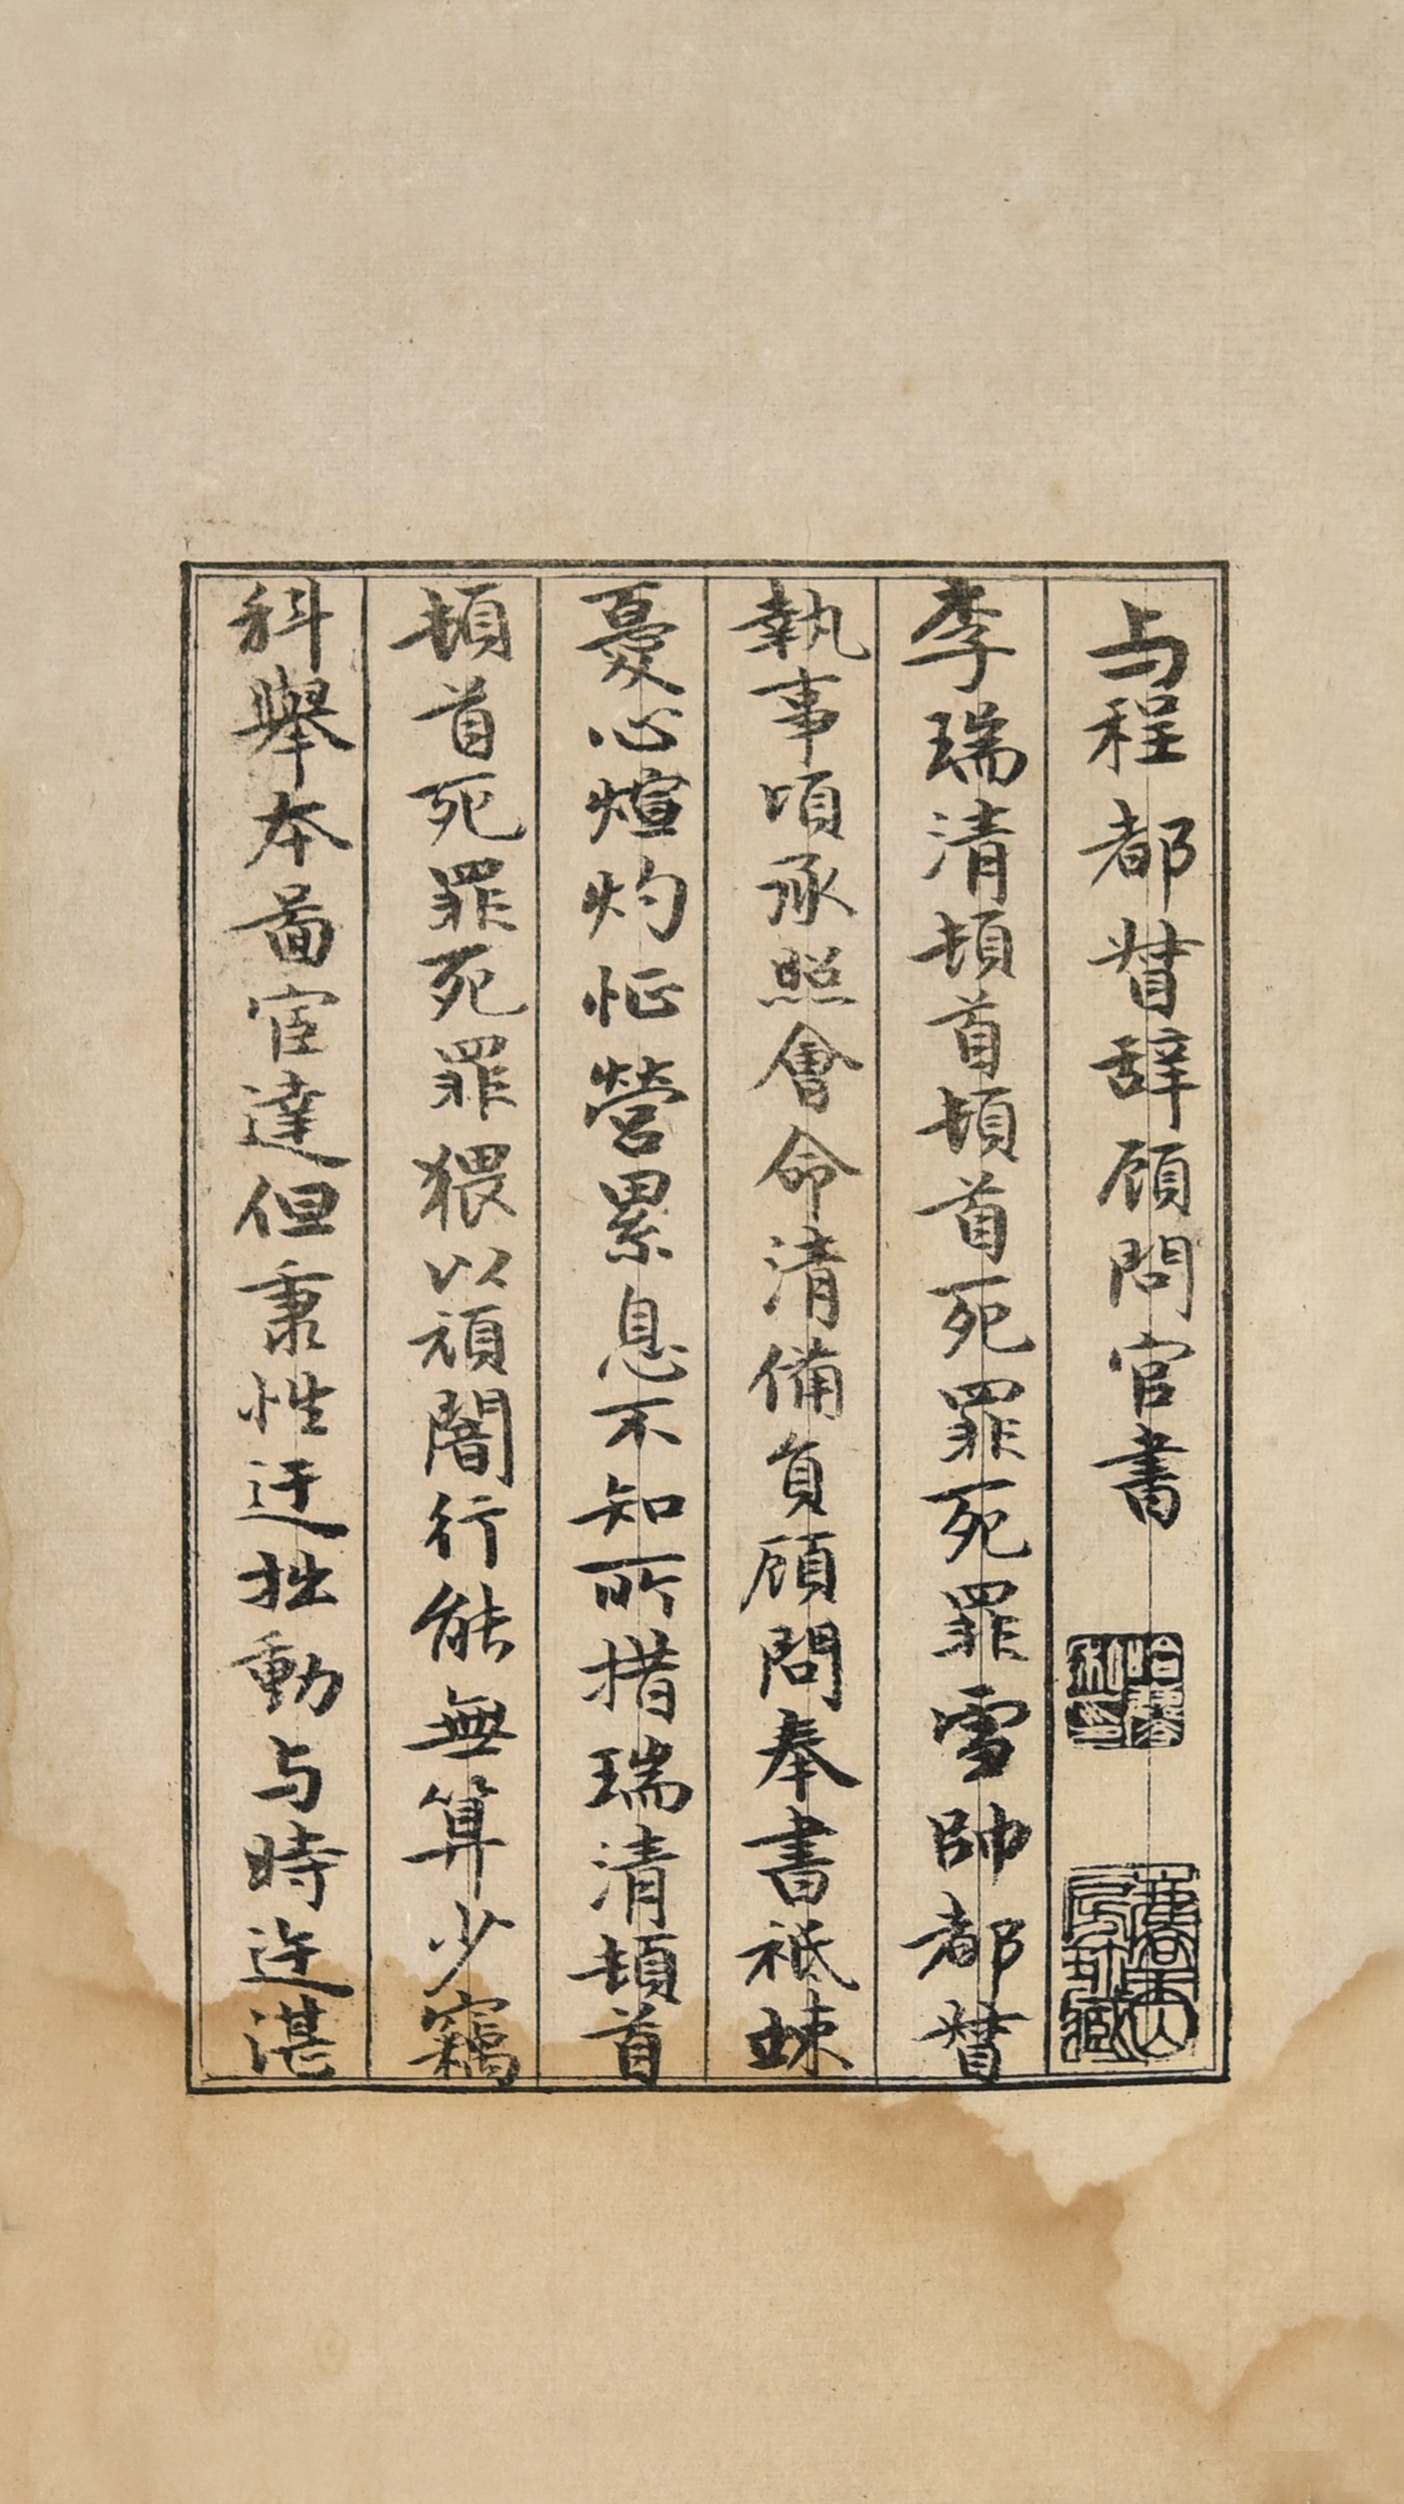 与程都督辞顾問官書
李瑞清頓首頓首死罪死罪雪帥都督
執事頃承照會命清備負顾問奉書祗竦
憂心煌灼怔營累息不知所措瑞清頓首
頓首死罪死罪猥以頑闇行能無算少竊
科舉本啚宦達但秉性迂拙動与時迕湛